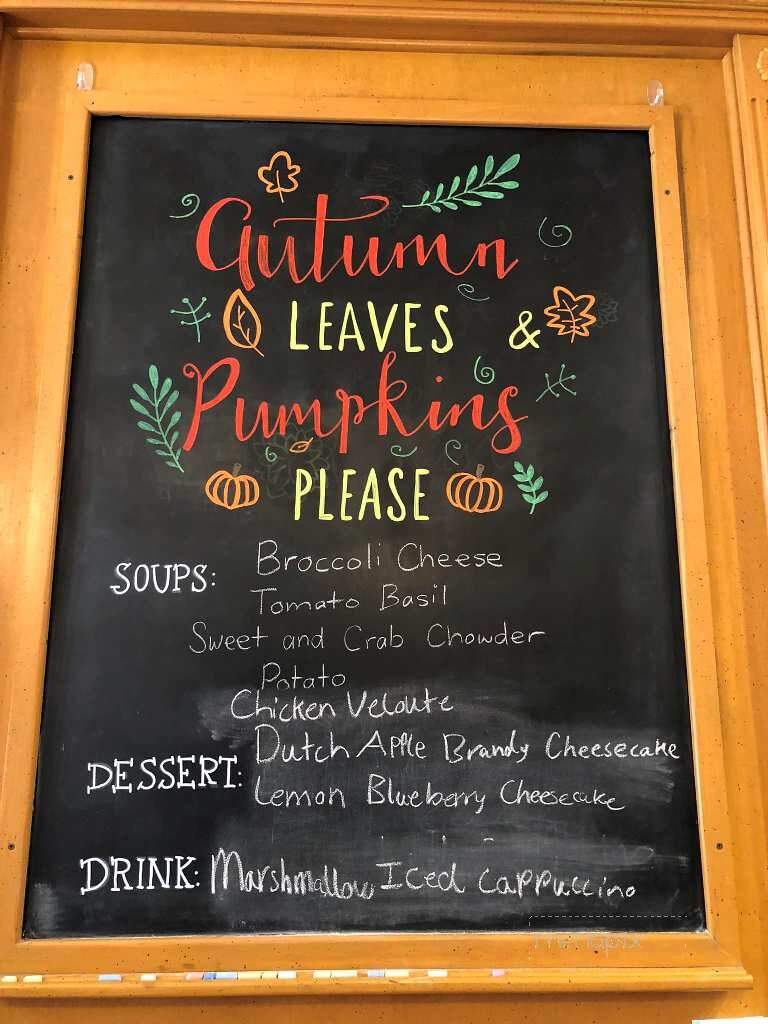 Autumn
LEAVES &
Pumpkins
PLEASE
SOUPS: Broccoli Cheese
Tomato Basil
Sweet and Crab Chowder
Potato
Chicken Veloute
DESSERT: Dutch Apple Brandy Cheesecake
Lemon Blueberry Cheesecake
DRINK: Marshmallow Iced Cappuccino